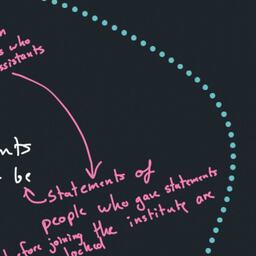 s who
ssistants
nts
be
statements of
people who gave statements
before joining the institute are
locked